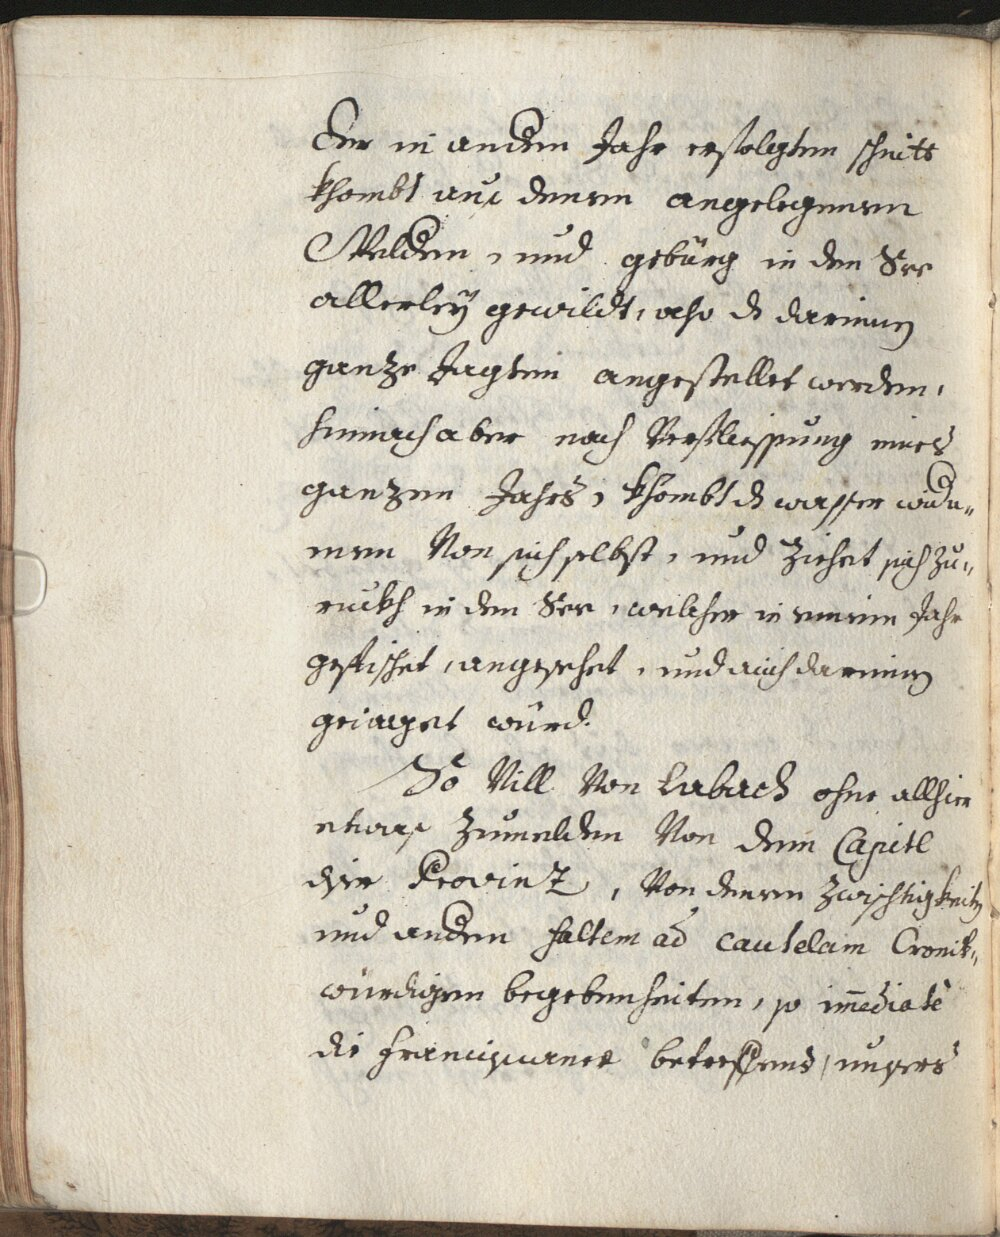 der in andern Jahr erfolgten schnitt
khombt aus denen angelegenen
Wäldern, und gebürg in den See
allerley gewildt, also dz darinnen
ganze Jagten angestellet werden,
hernach aber nach Verfliessung eines
ganzen Jahrs, khombt dz wasser wider„
umen Von sich selbst, und ziehet sich zu„
ruckh in den See, welcher in einem Jahr
gefischet, angesehet, und auch darinnen
geiaget würd.
So Vill Von Labach ohne allhier
etwas Zumelden Von dem Capitl
der Provinz, Von denen Zwischtigkeiten
und andern saltem ad cautelam Cronik„
würdigen begebenheiten, so immediatè
die Franciscaner betreffend, unsers